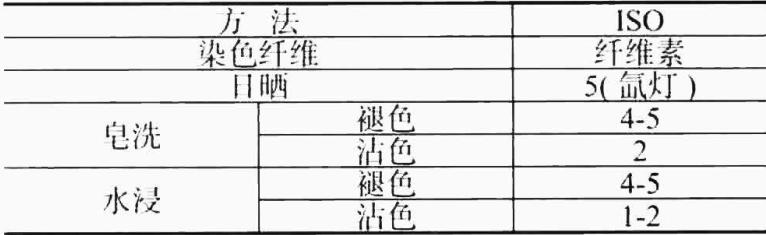 方 法 ISO
染色纤维 纤维素
日晒 5(氙灯)
皂洗 褪色 4-5
沾色 2
水浸 褪色 4-5
沾色 1-2